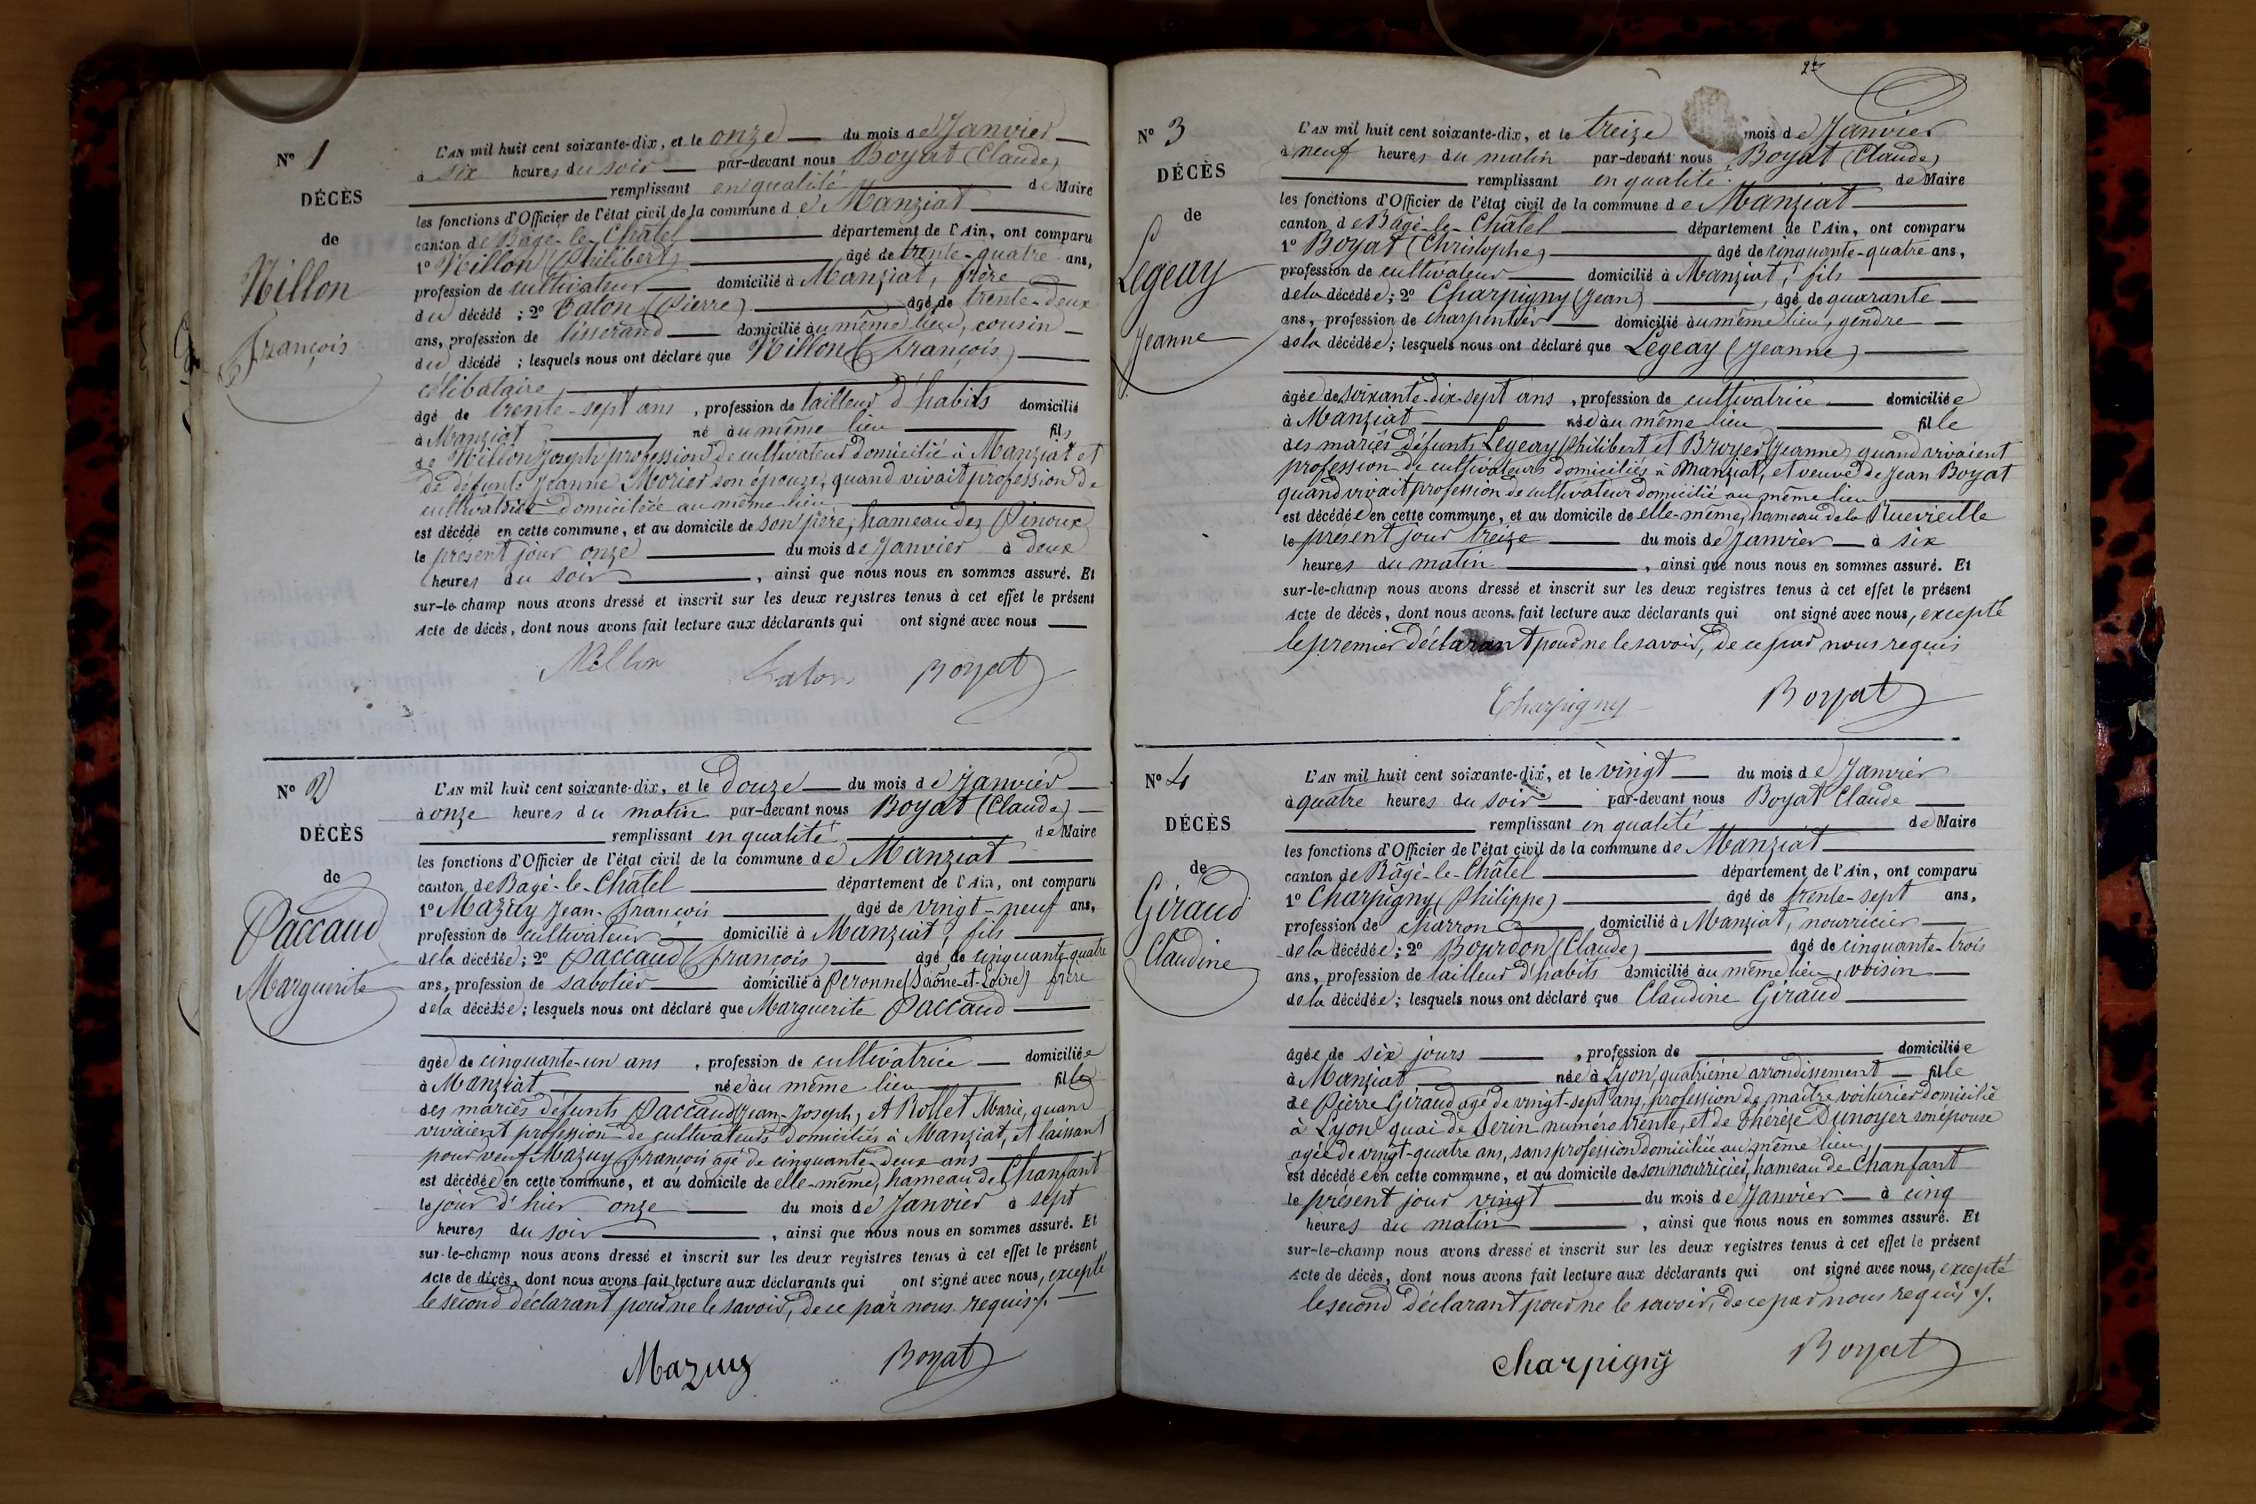 N° 1
DÉCÈS
de
Millon
François
L'AN mil huit cent soixante-dix, et le onze du mois de Janvier
à six heures du soir par-devant nous Boyat (Claude)
remplissant en qualité de Maire
les fonctions d'Officier de l'état civil de la commune de Manziat
canton de Bagé-le-Châtel département de l'Ain, ont comparu
1° Millon (Philibert) âgé de trente-quatre ans,
profession de cultivateur domicilié à Manziat, frère
du décédé ; 2° Caton (Pierre) âgé de trente-deux
ans, profession de tisserand domicilié au même lieu, cousin
du décédé ; lesquels nous ont déclaré que Millon (François)
célibataire
âgé de trente-sept ans, profession de tailleur d'habits domicilié
à Manziat né au même lieu fils
de Millon Joseph profession de cultivateur domicilié à Manziat et
de défunte Jeanne Morier son épouze, quand vivait profession de
cultivatrice domiciliée au même lieu
est décédé en cette commune, et au domicile de son père, hameau des Pinoux
le présent jour onze du mois de Janvier à deux
heures du soir, ainsi que nous nous en sommes assuré. Et
sur-le-champ nous avons dressé et inscrit sur les deux registres tenus à cet effet le présent
Acte de décès, dont nous avons fait lecture aux déclarants qui ont signé avec nous
Millon Caton Boyat
N° 2
DÉCÈS
de
Paccaud
Marguerite
L'AN mil huit cent soixante-dix, et le douze du mois de Janvier
à onze heures du matin par-devant nous Boyat (Claude)
remplissant en qualité de Maire
les fonctions d'Officier de l'état civil de la commune de Manziat
canton de Bagé-le-Châtel département de l'Ain, ont comparu
1° Mazuy Jean-François âgé de vingt-neuf ans,
profession de cultivateur domicilié à Manziat, fils
de la décédée ; 2° Paccaud (François) âgé de cinquante-quatre
ans, profession de sabotier domicilié à Peronne (Saône-et-Loire) frère
de la décédée ; lesquels nous ont déclaré que Marguerite Paccaud
âgée de cinquante-un ans, profession de cultivatrice domiciliée
à Manziat née au même lieu fille
des mariés défunts Paccaud Jean-Joseph, et Rollet Marie, quand
vivaient profession de cultivateurs domiciliés à Manziat, et laissant
pour veuf Mazuy François âgé de cinquante-deux ans
est décédée en cette commune, et au domicile de elle-même, hameau de Chanfant
le jour d'hier onze du mois de Janvier à sept
heures du soir, ainsi que nous nous en sommes assuré. Et
sur-le-champ nous avons dressé et inscrit sur les deux registres tenus à cet effet le présent
Acte de décès, dont nous avons fait lecture aux déclarants qui ont signé avec nous, excepté
le second déclarant pour ne le savoir, de ce par nous requis ./.
Mazuy Boyat
2
N° 3
DÉCÈS
de
Legeay
Jeanne
L'AN mil huit cent soixante-dix, et le treize mois de Janvier
à neuf heures du matin par-devant nous Boyat (Claude)
remplissant en qualité de Maire
les fonctions d'Officier de l'état civil de la commune de Manziat
canton de Bâgé-le-Châtel département de l'Ain, ont comparu
1° Boyat (Christophe) âgé de cinquante-quatre ans,
profession de cultivateur domicilié à Manziat, fils
de la décédée ; 2° Charpigny (Jean), âgé de quarante
ans, profession de charpentier domicilié au même lieu, gendre
de la décédée ; lesquels nous ont déclaré que Legeay (Jeanne)
âgée de soixante-dix-sept ans, profession de cultivatrice domiciliée
à Manziat née au même lieu fille
des mariés défunts Legeay Philibert et Broyer (Jeanne) quand vivaient
profession de cultivateurs domiciliés à Manziat, et veuve de Jean Boyat
quand vivait profession de cultivateur domicilié au même lieu
est décédée en cette commune, et au domicile de elle-même, hameau de la Ruevieille
le présent jour treize du mois de Janvier à six
heures du matin, ainsi que nous nous en sommes assuré. Et
sur-le-champ nous avons dressé et inscrit sur les deux registres tenus à cet effet le présent
Acte de décès, dont nous avons fait lecture aux déclarants qui ont signé avec nous, excepté
le premier déclarant pour ne le savoir, de ce par nous requis
Charpigny Boyat
N° 4
DÉCÈS
de
Giraud
Claudine
L'AN mil huit cent soixante-dix, et le vingt du mois de Janvier
à quatre heures du soir par-devant nous Boyat Claude
remplissant en qualité de Maire
les fonctions d'Officier de l'état civil de la commune de Manziat
canton de Bâgé-le-Châtel département de l'Ain, ont comparu
1° Charpigny (Philippe) âgé de trente-sept ans,
profession de charron domicilié à Manziat, nourricier
de la décédée ; 2° Bourdon (Claude) âgé de cinquante-trois
ans, profession de tailleur d'habits domicilié au même lieu, voisin
de la décédée ; lesquels nous ont déclaré que Claudine Giraud
âgée de six jours, profession de domiciliée
à Manziat née à Lyon, quatrième arrondissement fille
de Pierre Giraud agé de vingt-sept ans, profession de maître voiturier domicilié
à Lyon quai de Serin numéro trente, et de Thérèze Dunoyer son épouse
agée de vingt-quatre ans, sans profession domiciliée au même lieu,
est décédée en cette commune, et au domicile de son nourricier, hameau de Chanfant
le présent jour vingt du mois de Janvier à cinq
heures du matin, ainsi que nous nous en sommes assuré. Et
sur-le-champ nous avons dressé et inscrit sur les deux registres tenus à cet effet le présent
Acte de décès, dont nous avons fait lecture aux déclarants qui ont signé avec nous, excepté
le second déclarant pour ne le savoir, de ce par nous requis ./.
Charpigny Boyat